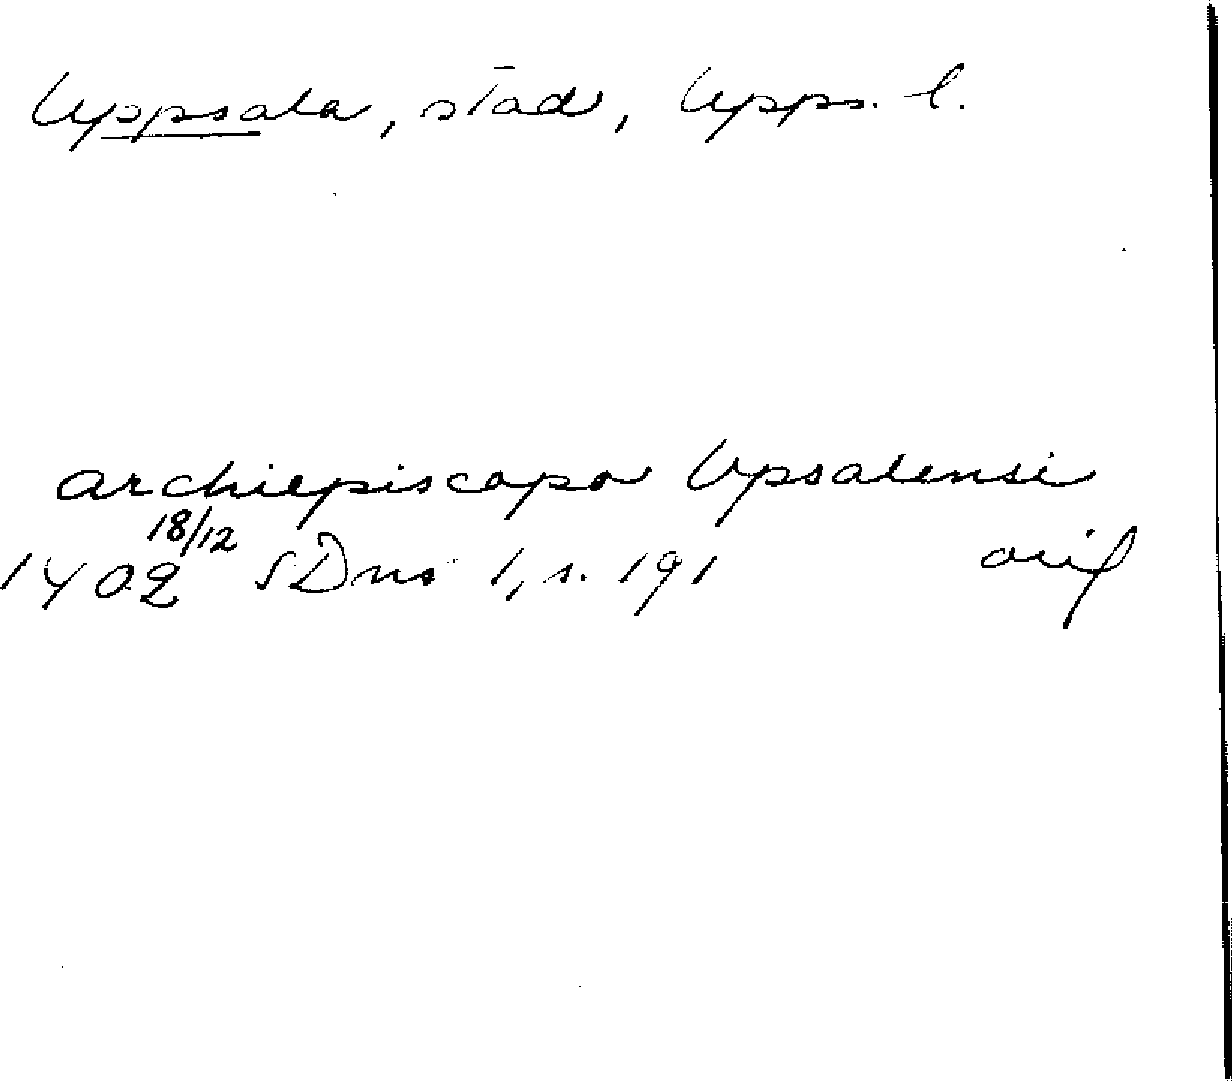 Uppsala, stad, Upps. l.
archiepiscopo Upsalensi
18/12
1402 SDns 1, s. 191 orig